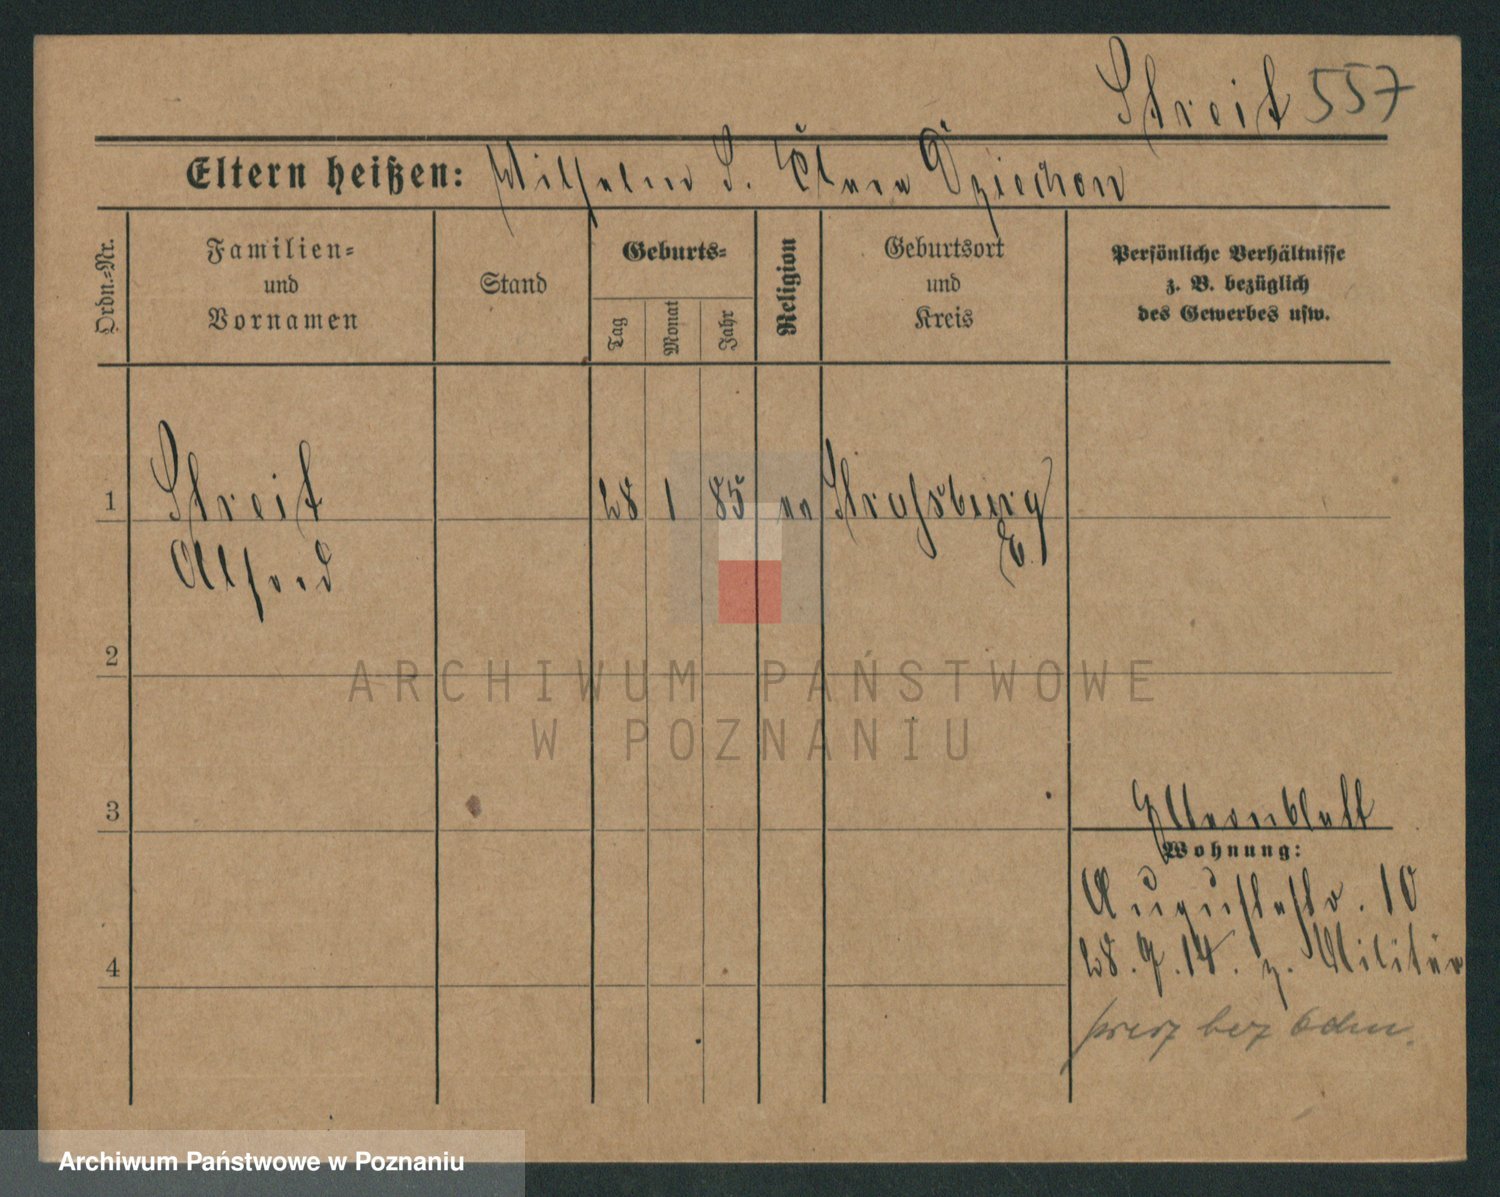 Streit 557
Eltern heißen: Wilhelm S. Clara Dziechon
Ordn.=Nr.
Familien=
und
Vornamen
Stand
Geburts=
Tag
Monat
Jahr
Religion
Geburtsort
und
Kreis
Persönliche Verhältnisse
z. B. bezüglich
des Gewerbes usw.
1
Streit
Alfred
28 1 85
Strassburg
E.
2
3
4
Elternblatt
Wohnung:
Augustastr. 10
28.9.14. z. Militär
bez odm.
ARCHIWUM PAŃSTWOWE
W POZNANIU
Archiwum Państwowe w Poznaniu